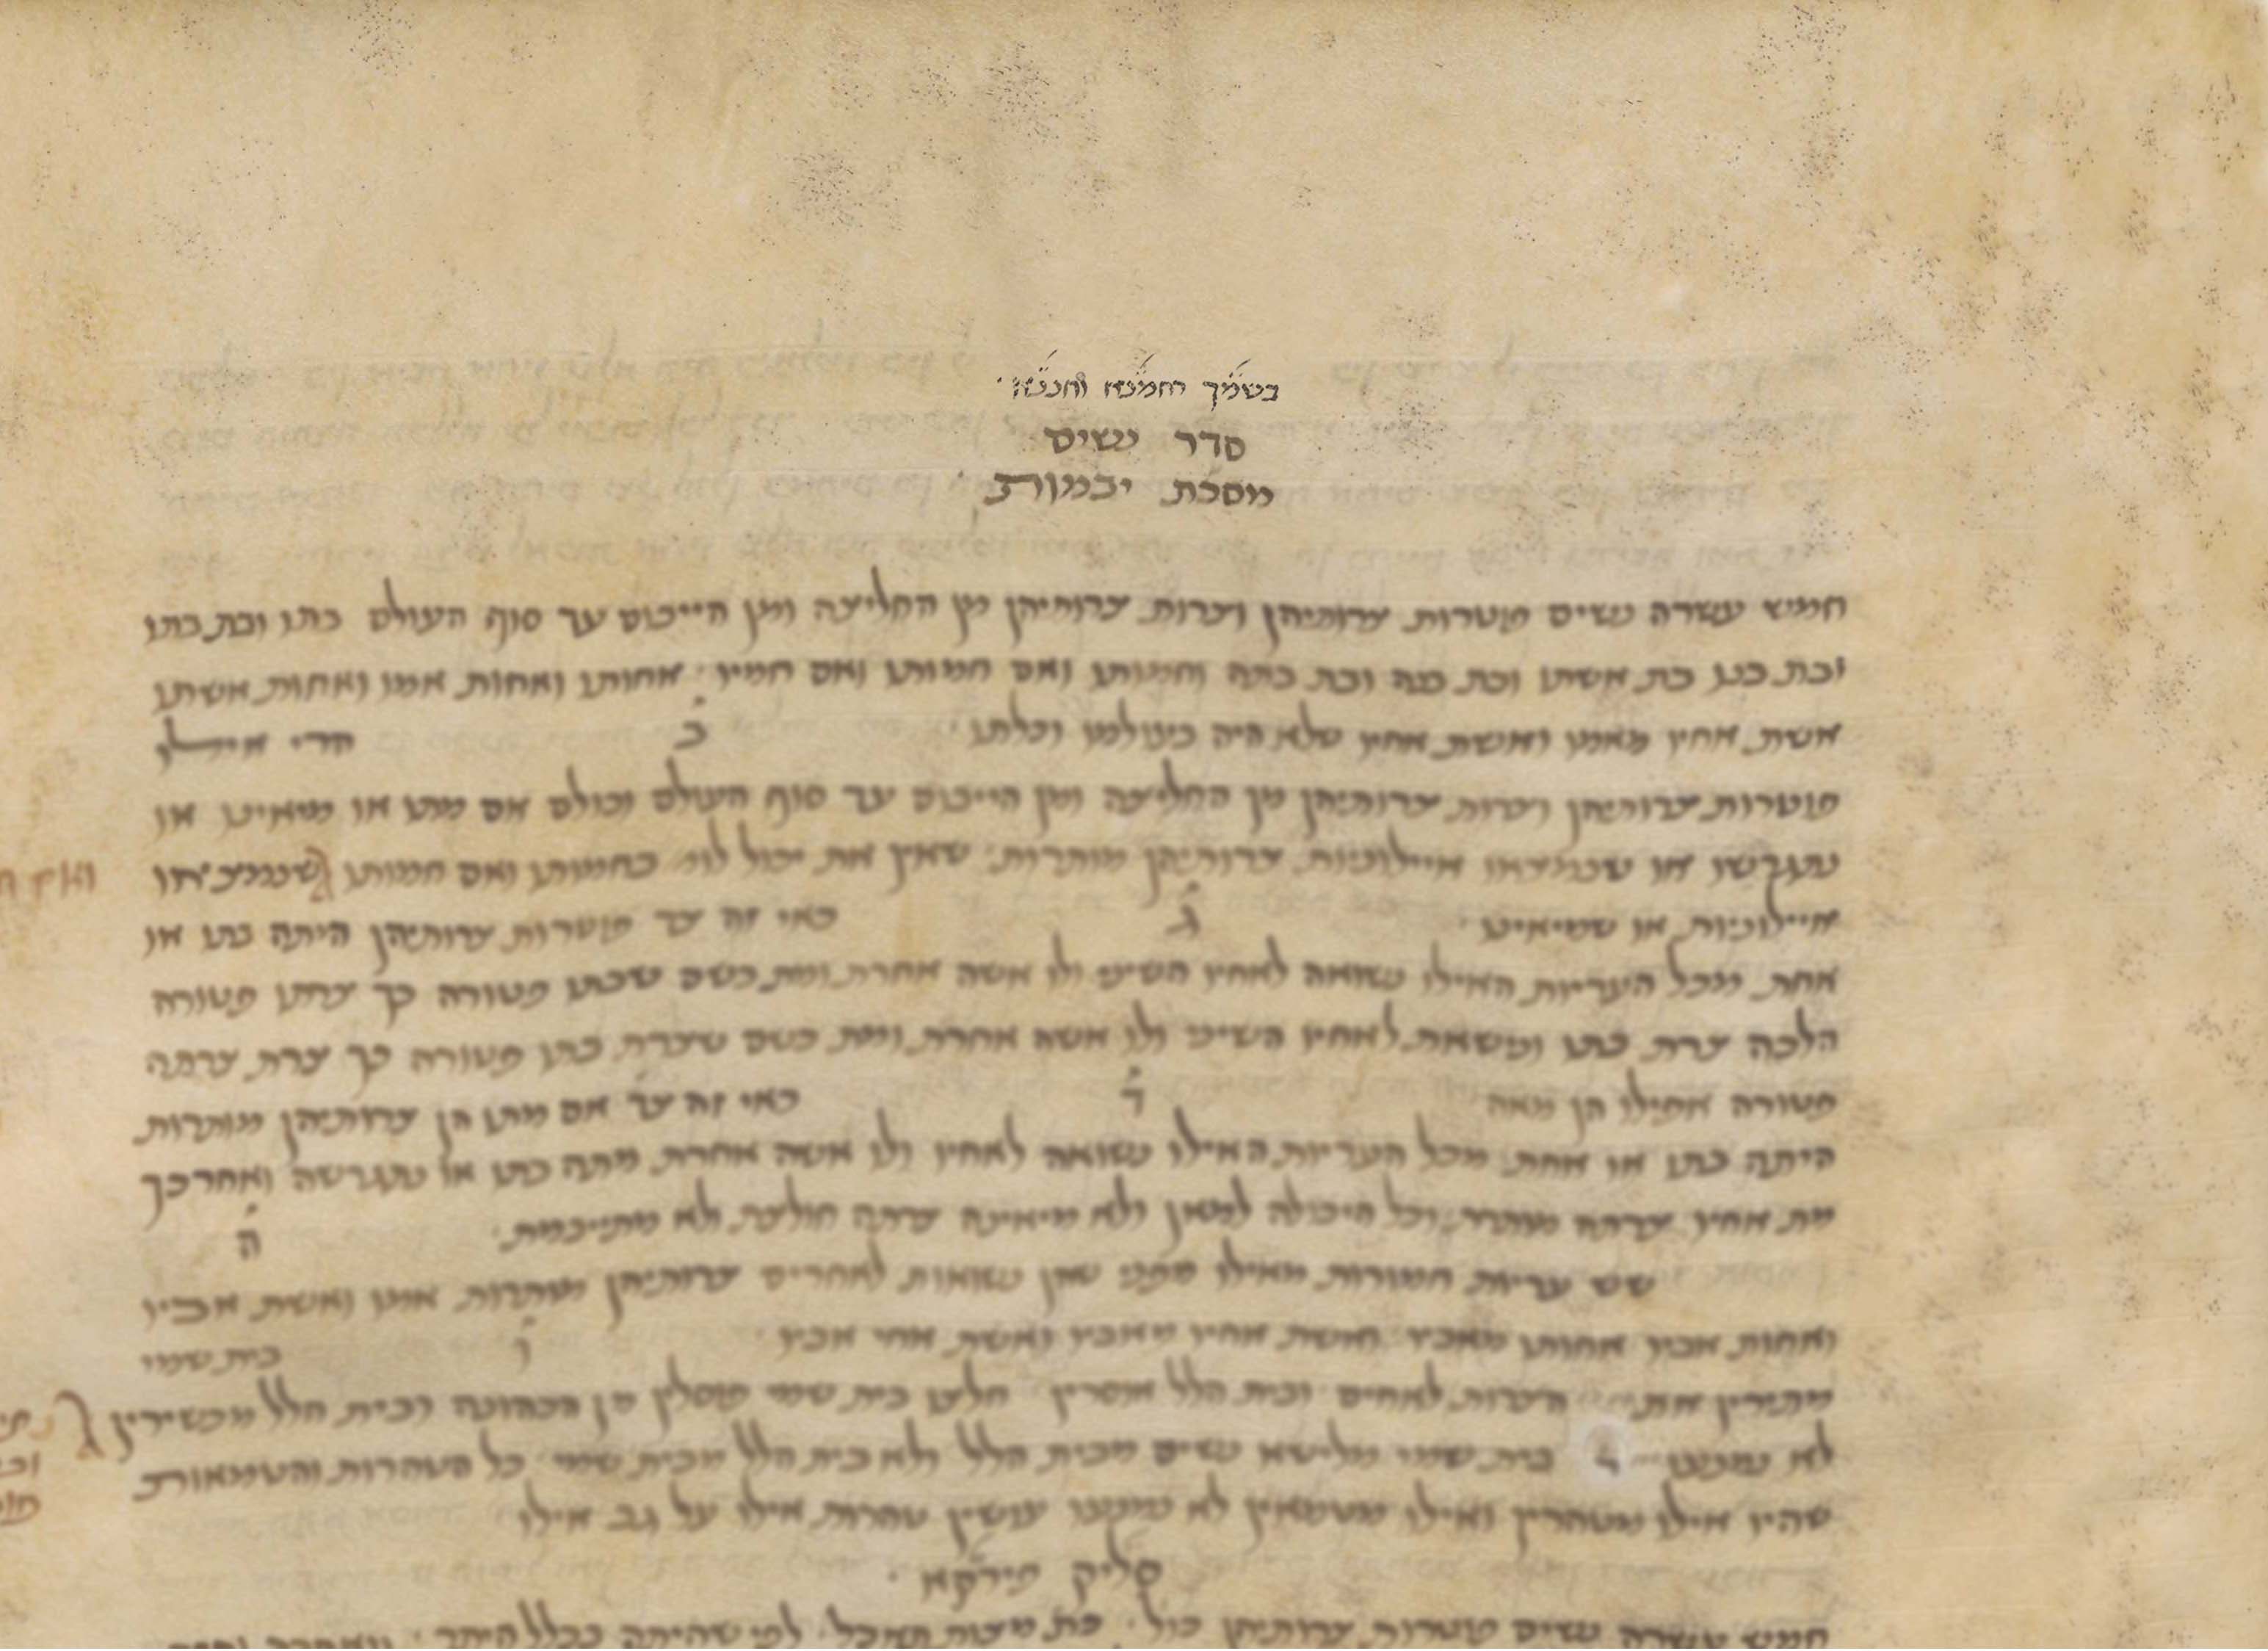 סדר נשים
מסכת יבמות
חמש עשרה נשים פוטרות צרותיהן וצרות צרותיהן מן החליצה ומן הייבום עד סוף העולם בתו ובת בתו
ובת בנו בת אשתו ובת בנה ובת בתה וחמותו ואם חמותו ואם חמיו · אחותו ואחות אמו ואחות אשתו
אשת אחיו מאמו ואשת אחיו שלא היה בעולמו וכלתו · ב הרי אילו
פוטרות צרותיהן וצרות צרותיהן מן החליצה ומן הייבום עד סוף העולם וכולם אם מתו או מיאינו או
נתגרשו או שנמצאו איילוניות צרותיהן מותרות · שאין את יכול לומר בחמותו ואם חמותו שנמצאו
איילוניות או שמיאינו · ג כאי זה צד פוטרות צרותיהן היתה בתו או
אחת מכל העריות האילו נשואה לאחיו השיני ולו אשה אחרת ומת כשם שבתו פטורה כך צרתו פטורה
הלכה צרת בתו ונישאת לאחיו השיני ולו אשה אחרת ומת כשם שצרת בתו פטורה כך צרת צרתה
פטורה אפילו הן מאה ד כאי זה צד אם מתו הן צרותיהן מותרות
היתה בתו או אחת מכל העריות האילו נשואה לאחיו ולו אשה אחרת מתה בתו או נתגרשה ואחר כך
מת אחיו צרתה מותרת וכל היכולה למאן ולא מיאינה צרתה חולצת ולא מתייבמת · ה
שש עריות חמורות מאילו מפני שהן נשואות לאחרים צרותיהן מותרות אמו ואשת אביו
ואחות אביו אחותו מאביו ואשת אחיו מאביו ואשת אחי אביו · ו בית שמי
מתירין את הצרות לאחים ובית הלל אוסרין חלצו בית שמי פוסלין מן הכהונה ובית הלל מכשירין
לא נמנעו בית שמי מלישא נשים מבית הלל ולא בית הלל מבית שמי כל הטהרות והטמאות
שהיו אילו מטהרין ואילו מטמאין לא נמנעו עושין טהרות אילו על גב אילו
סליק פירקא ·
חמש עשרה נשים פוטרות צרותיהן כול׳